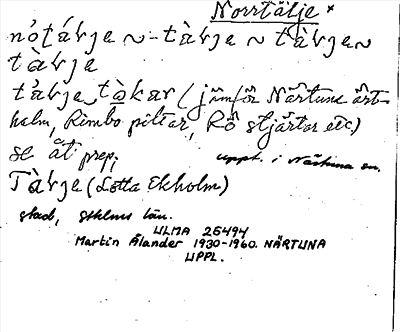 Norrtälje x
nótárje ~ -tàrje ~ tàrje ~
tàrje
tàrje tòkar (jämför Närtuna årt-
holm, Rimbo piltar, Rö stjärtar etc)
se åt prep; uppt. i Närtuna sn.
Tàrje (Lotta Ekholm)
stad, Sthlms län.
ULMA 26494
Martin Ålander 1930-1960. NÄRTUNA
UPPL.